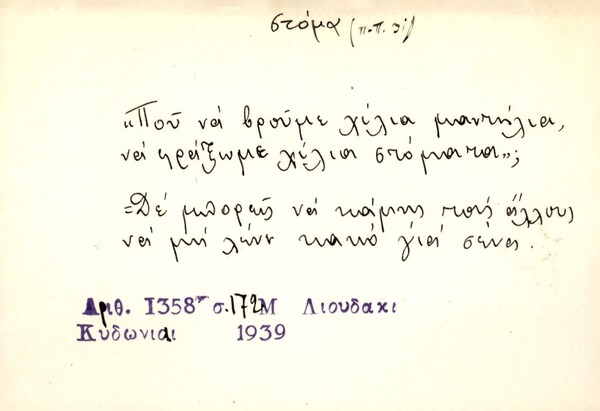 στόμα (π-π. 31)
"Ποῦ νά βροῦμε χίλια μαντήλια,
νά φράξωμε χίλια στόματα";
=Δέ μπορεῖς νά κάμῃς τούς ἄλλους
νά μή λένε κακό γιά σένα.
Αριθ. 1358 σ.172 Μ Λιουδακι
Κυδωνιαι 1939